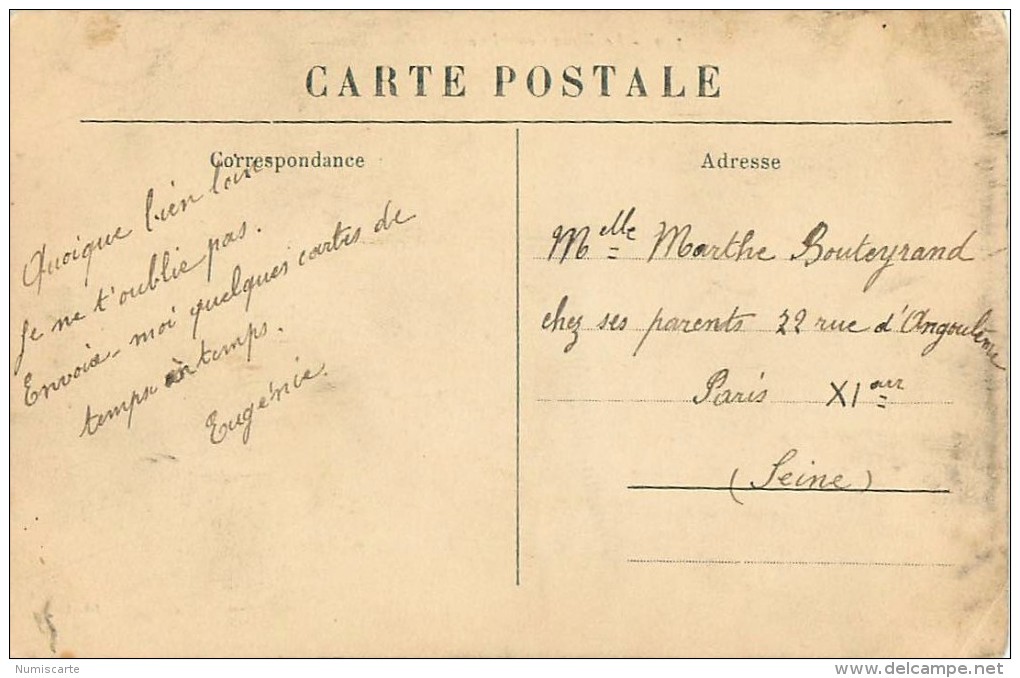 CARTE POSTALE
Correspondance
Quoique bien loin
Je ne t'oublie pas.
Envoie-moi quelques cartes de
temps en temps.
Eugénie.
Adresse
Melle Marthe Bouteyrand
chez ses parents 22 rue d'Angoulême
Paris XI arr
(Seine)
Numiscarte
www.delcampe.net